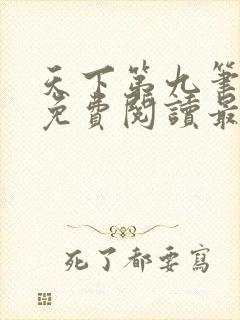 天下第九筆
免費閱讀最
死了都要寫